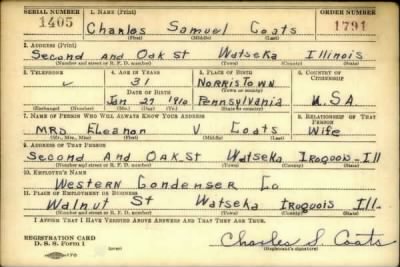 SERIAL NUMBER 1. NAME (Print) ORDER NUMBER
1405 Charles Samuel Coats 1791
(First) (Middle) (Last)
2. ADDRESS (Print)
Second And Oak St Watseka Illinois
(Number and street or R. F. D. number) (Town) (County) (State)
3. TELEPHONE 4. AGE IN YEARS 5. PLACE OF BIRTH 6. COUNTRY OF CITIZENSHIP
31 Norristown
DATE OF BIRTH (Town or county)
Jan 27 1910 Pennsylvania U.S.A.
(Exchange) (Number) (Mo.) (Day) (Yr.) (State or country)
7. NAME OF PERSON WHO WILL ALWAYS KNOW YOUR ADDRESS 8. RELATIONSHIP OF THAT PERSON
Mrs Eleanor V Coats Wife
(Mr., Mrs., Miss) (First) (Middle) (Last)
9. ADDRESS OF THAT PERSON
Second And Oak St Watseka Iroquois-Ill
(Number and street or R. F. D. number) (Town) (County) (State)
10. EMPLOYER'S NAME
Western Condenser Co
11. PLACE OF EMPLOYMENT OR BUSINESS
Walnut St Watseka Iroquois Ill.
(Number and street or R. F. D. number) (Town) (County) (State)
I AFFIRM THAT I HAVE VERIFIED ABOVE ANSWERS AND THAT THEY ARE TRUE.
REGISTRATION CARD
D. S. S. Form 1 (over) Charles S. Coats
(Registrant's signature)